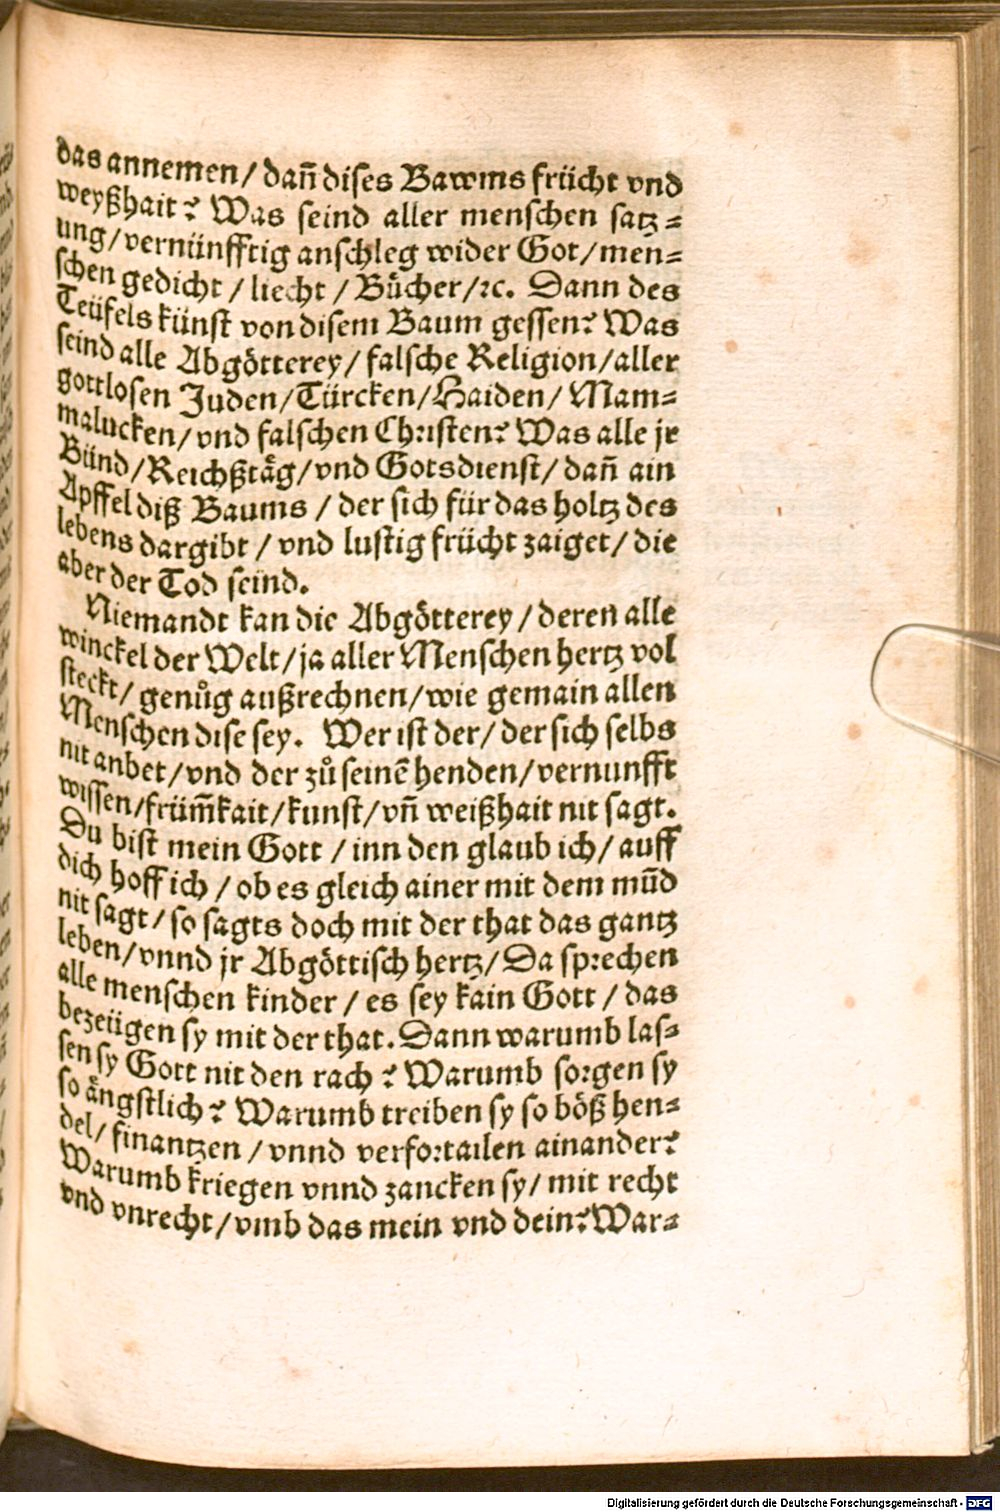 das annemen / dañ dises Bawms frücht vnd
weyßhait? Was seind aller menschen satz-
ung / vernünfftig anschleg wider Got / men-
schen gedicht / liecht / Bücher / ꝛc. Dann des
Teüfels künst von disem Baum gessen? Was
seind alle Abgötterey / falsche Religion / aller
gottlosen Juden / Türcken / Haiden / Mam-
malucken / vnd falschen Christen? Was alle jr
Bünd / Reichßtäg / vnd Gotsdienst / dañ ain
Apffel diß Baums / der sich für das holtz des
lebens dargibt / vnd lustig frücht zaiget / die
aber der Tod seind.
Niemandt kan die Abgötterey / deren alle
winckel der Welt / ja aller Menschen hertz vol
steckt / genůg außrechnen / wie gemain allen
Menschen dise sey. Wer ist der / der sich selbs
nit anbet / vnd der zů seinē henden / vernunfft
wissen / früm̃kait / kunst / vñ weißhait nit sagt.
Du bist mein Gott / inn den glaub ich / auff
dich hoff ich / ob es gleich ainer mit dem mūd
nit sagt / so sagts doch mit der that das gantz
leben / vnnd jr Abgöttisch hertz / Da sprechen
alle menschen kinder / es sey kain Gott / das
bezeügen sy mit der that. Dann warumb las-
sen sy Gott nit den rach? Warumb sorgen sy
so ängstlich? Warumb treiben sy so böß hen-
del / finantzen / vnnd verfortailen ainander?
Warumb kriegen vnnd zancken sy / mit recht
vnd vnrecht / vmb das mein vnd dein? War-
Digitalisierung gefördert durch die Deutsche Forschungsgemeinschaft - DFG